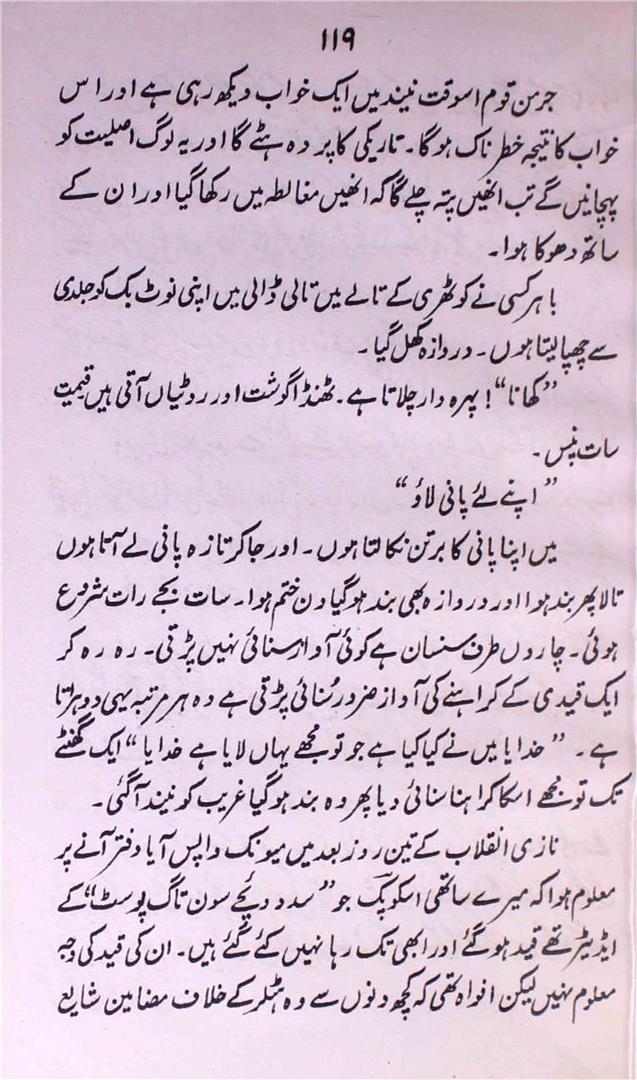 ۱۱۹
جرمن قوم اسوقت نیند میں ایک خواب دیکھ رہی ہے اور اس
خواب کا نتیجہ خطرناک ہوگا۔ تاریکی کا پردہ ہٹے گا اور یہ لوگ اصلیت کو
پہچانیں گے تب انھیں پتہ چلے گا کہ انھیں مغالطہ میں رکھا گیا اور ان کے
ساتھ دھوکا ہوا۔
باہر کسی نے کوٹھری کے تالے میں تالی ڈالی میں اپنی نوٹ بک کو جلدی
سے چھپا لیتا ہوں۔ دروازہ کھل گیا۔
”کھانا“! پہرہ دار چلاتا ہے۔ ٹھنڈا گوشت اور روٹیاں آتی ہیں قیمت
سات پنس۔
”اپنے لئے پانی لاؤ“
میں اپنا پانی کا برتن نکالتا ہوں۔ اور جاکر تازہ پانی لے آتا ہوں
تالا پھر بند ہوا اور دروازہ بھی بند ہوگیا دن ختم ہوا۔ سات بجے رات شروع
ہوئی۔ چاروں طرف سنسان ہے کوئی آواز سنائی نہیں پڑتی۔ رہ رہ کر
ایک قیدی کے کراہنے کی آواز ضرور سُنائی پڑتی ہے وہ ہر مرتبہ یہی دوہراتا
ہے۔ ”خدایا میں نے کیا کیا ہے جو تو مجھے یہاں لایا ہے خدایا“ ایک گھنٹے
تک تو مجھے اسکا کراہنا سنائی دیا پھر وہ بند ہوگیا غریب کو نیند آگئی۔
نازی انقلاب کے تین روز بعد میں میونک واپس آیا دفتر آنے پر
معلوم ہوا کہ میرے ساتھی اسکوپک جو ”سدو دئچے سون تاگ پوسٹ“ کے
ایڈیٹر تھے قید ہوگئے اور ابھی تک رہا نہیں کئے گئے ہیں۔ ان کی قید کی وجہ
معلوم نہیں لیکن افواہ تھی کہ کچھ دنوں سے وہ ہٹلر کے خلاف مضامین شایع